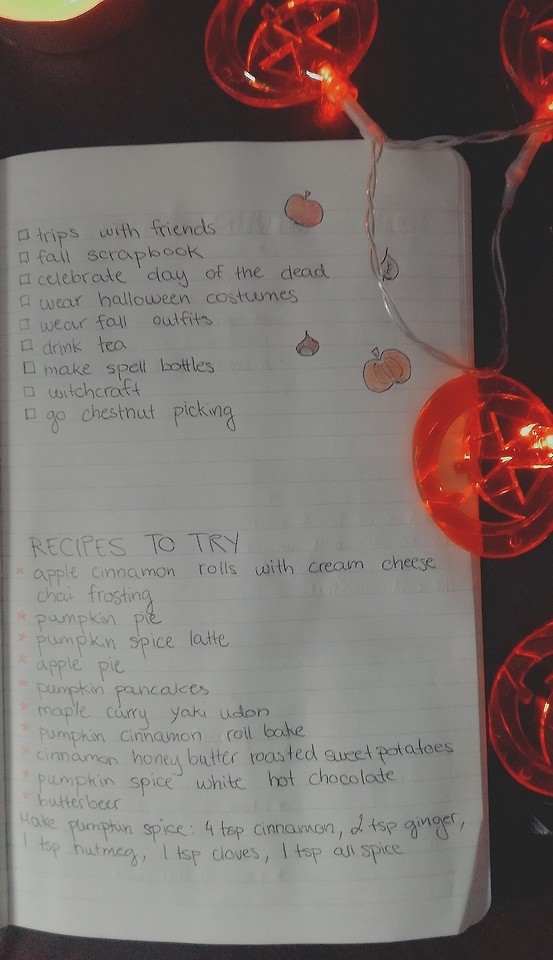 ☐ trips with friends
☐ fall scrapbook
☐ celebrate day of the dead
☐ wear halloween costumes
☐ wear fall outfits
☐ drink tea
☐ make spell bottles
☐ witchcraft
☐ go chestnut picking
RECIPES TO TRY
* apple cinnamon rolls with cream cheese
chai frosting
* pumpkin pie
* pumpkin spice latte
* apple pie
* pumpkin pancakes
* maple curry yaki udon
* pumpkin cinnamon roll bake
* cinnamon honey butter roasted sweet potatoes
* pumpkin spice white hot chocolate
* butterbeer
Make pumpkin spice: 4 tsp cinnamon, 2 tsp ginger,
1 tsp nutmeg, 1 tsp cloves, 1 tsp all spice